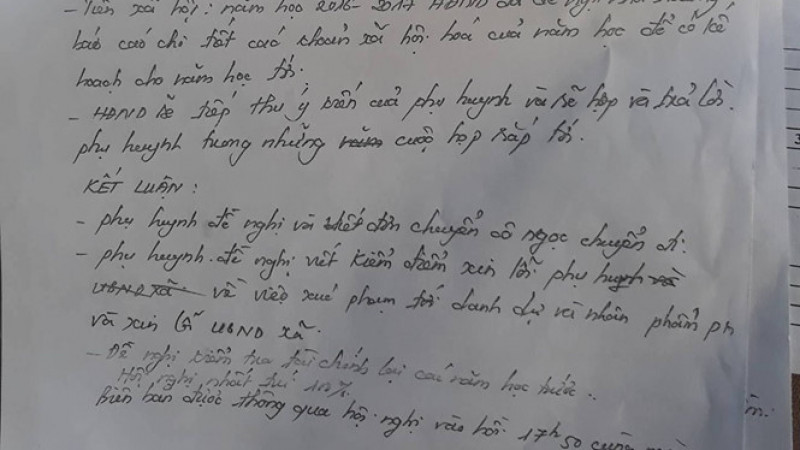 - Tiền xã hội: năm học 2016-2017 HĐND đã đề nghị nhà trường
báo cáo chi tiết các khoản xã hội hoá của năm học để có kế
hoạch cho năm học tới.
- HĐND sẽ tiếp thu ý kiến của phụ huynh và sẽ họp và trả lời
phụ huynh trong những năm cuộc họp sắp tới.
KẾT LUẬN:
- phụ huynh đề nghị và viết đơn chuyển cô ngọc chuyển đi.
- phụ huynh đề nghị viết kiểm điểm xin lỗi phụ huynh và
UBND xã về việc xúc phạm tới danh dự và nhân phẩm PH
và xin lỗi UBND xã.
- Đề nghị kiểm tra tài chính lại các năm học trước.
Hội nghị nhất trí
Biên bản được thông qua hội nghị vào hồi 17h50 cùng